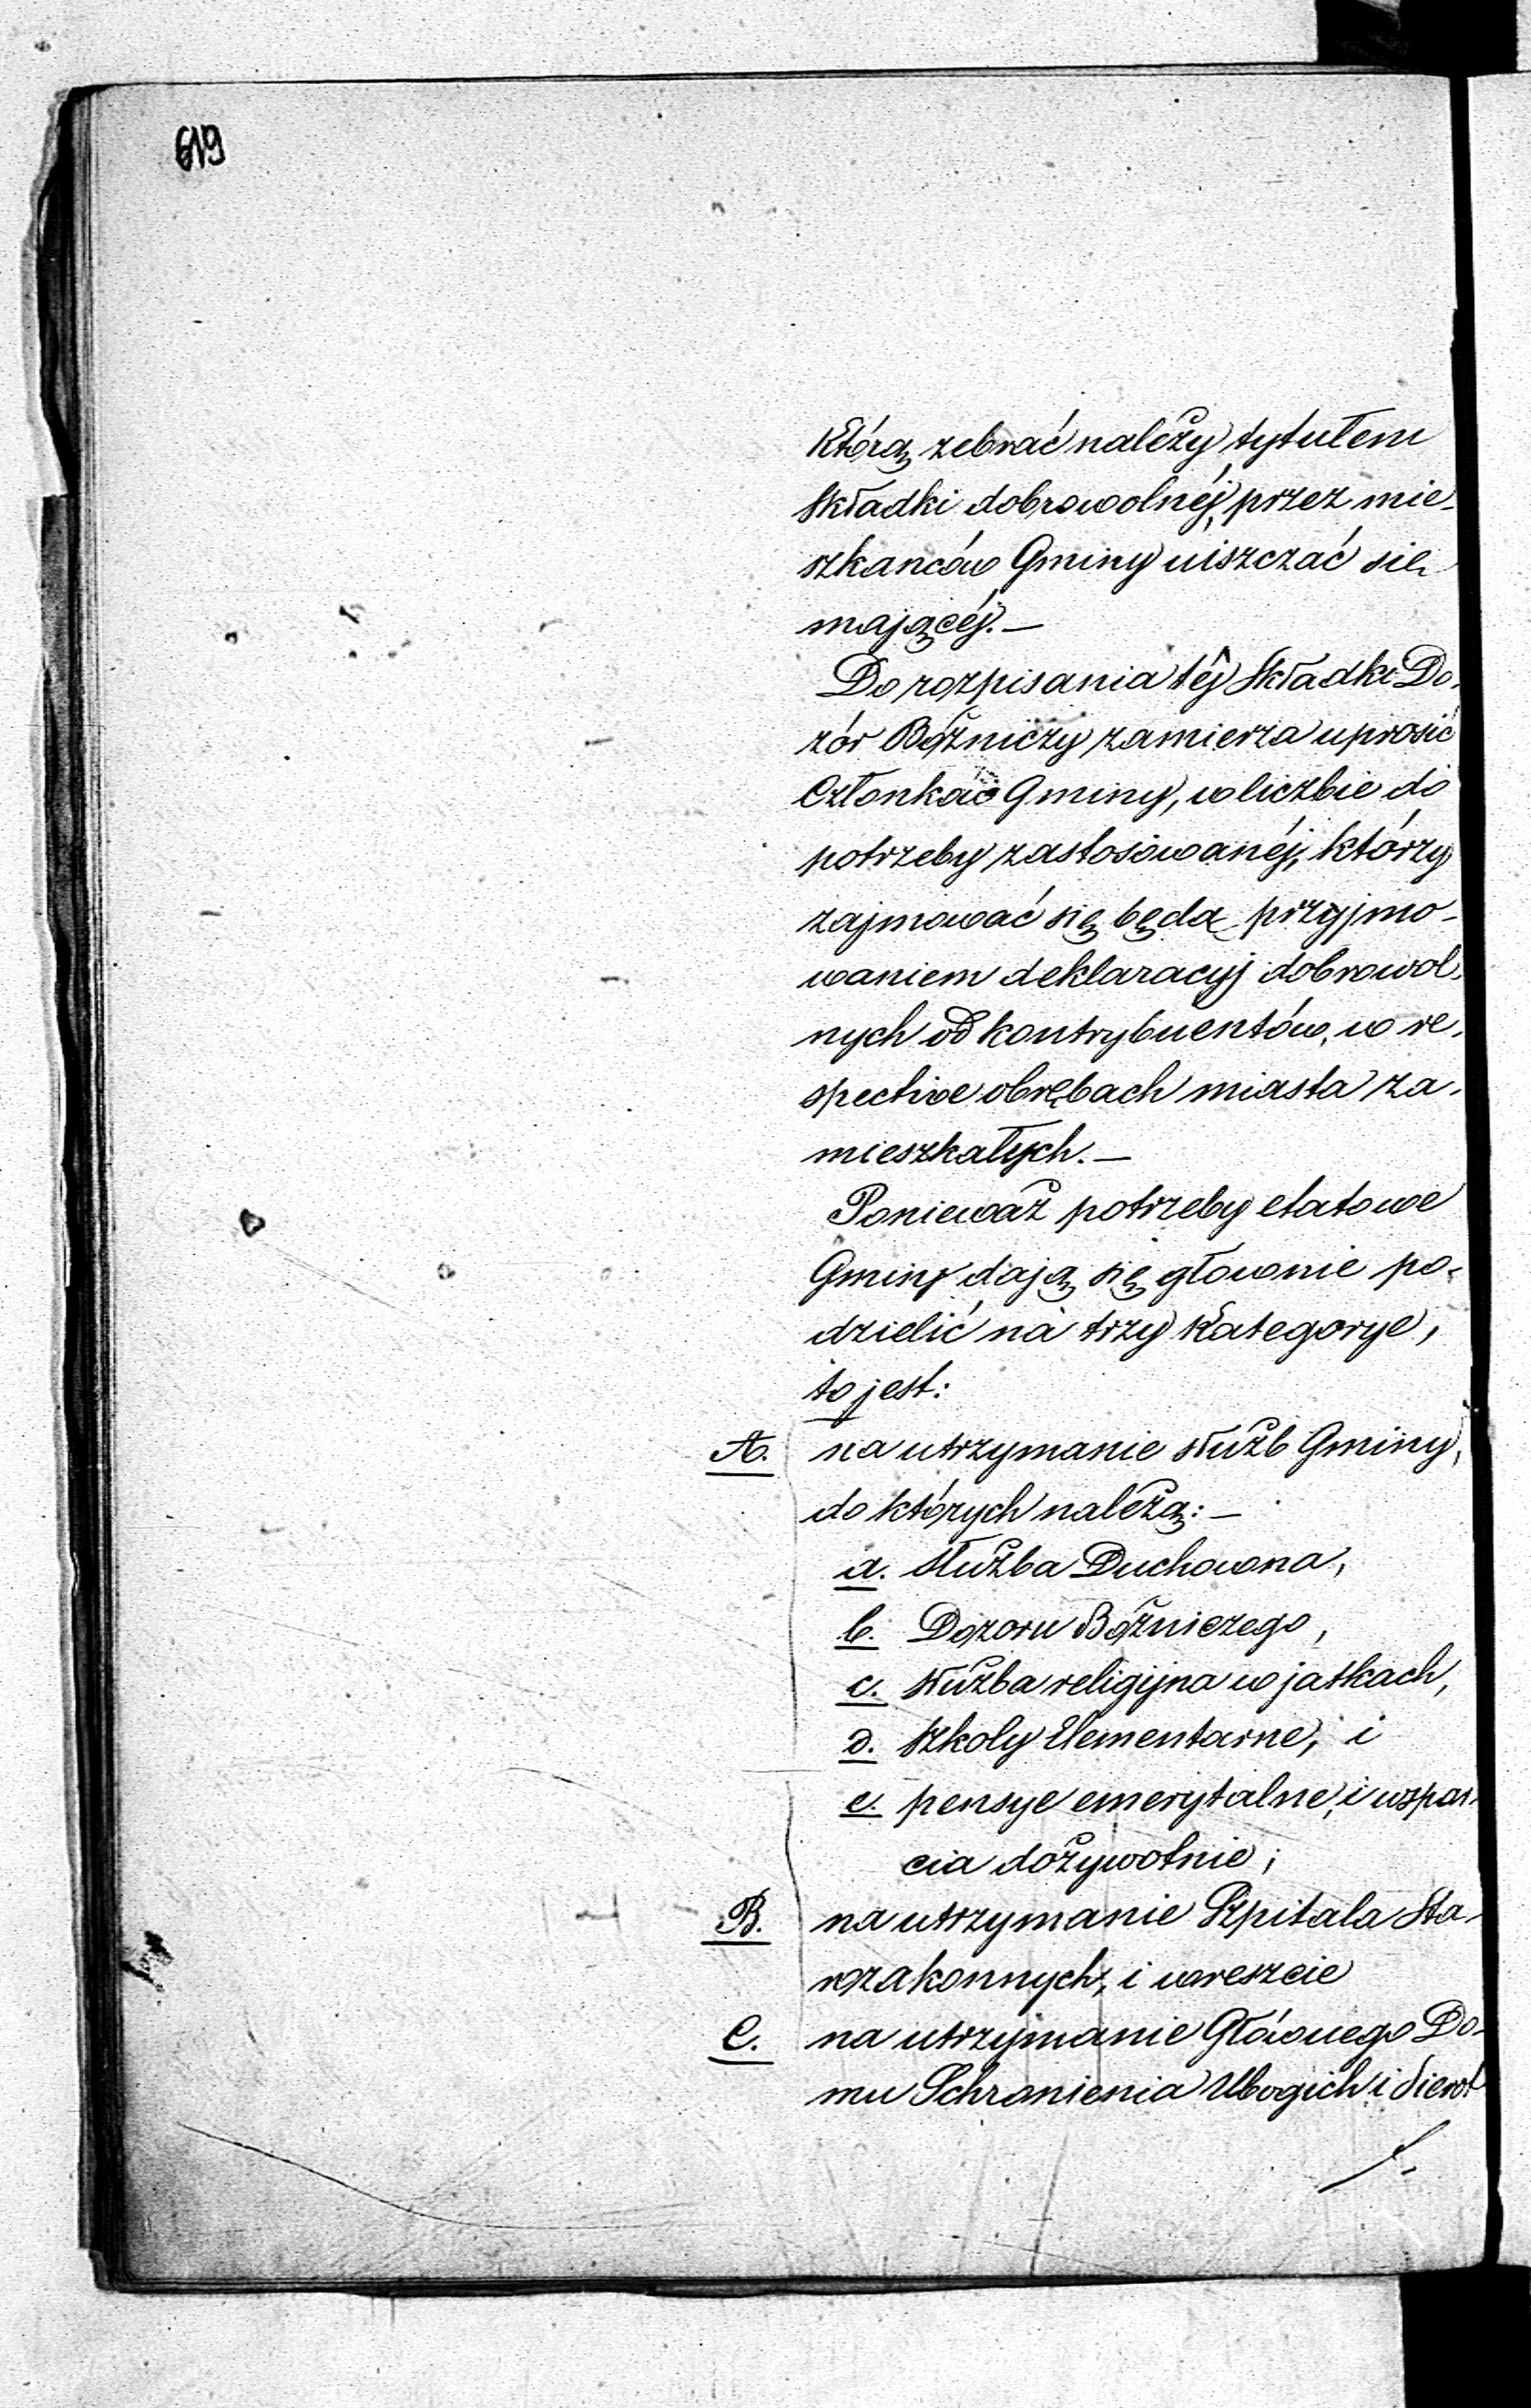 619
którą zebrać należy tytułem
składki dobrowolnéj, przez mie-
szkańców Gminy uiszczać się
mającéj.—
Do rozpisania téj Składki Do-
zór Bóżniczy zamierza uprosić
Członków Gminy, w liczbie do
potrzeby zastosowanéj, którzy
zajmować się będą przyjmo-
waniem deklaracyj dobrowol-
nych od kontrybuentów, w re-
spective obrębach miasta za-
mieszkałych.—
Ponieważ potrzeby etatowe
Gminy dają się głównie po-
dzielić na trzy Kategorye,
to jest:
A. na utrzymanie służb Gminy,
do których należą:—
a. służba Duchowna,
b. Dozoru Bóżniczego,
c. służba religijna w jatkach,
d. szkoły Elementarne, i
e. pensye emerytalne, i wspar-
cia dożywotnie;
B. na utrzymanie Szpitala Sta-
rozakonnych, i wreszcie
C. na utrzymanie Głównego Do-
mu Schronienia Ubogich i Sierot